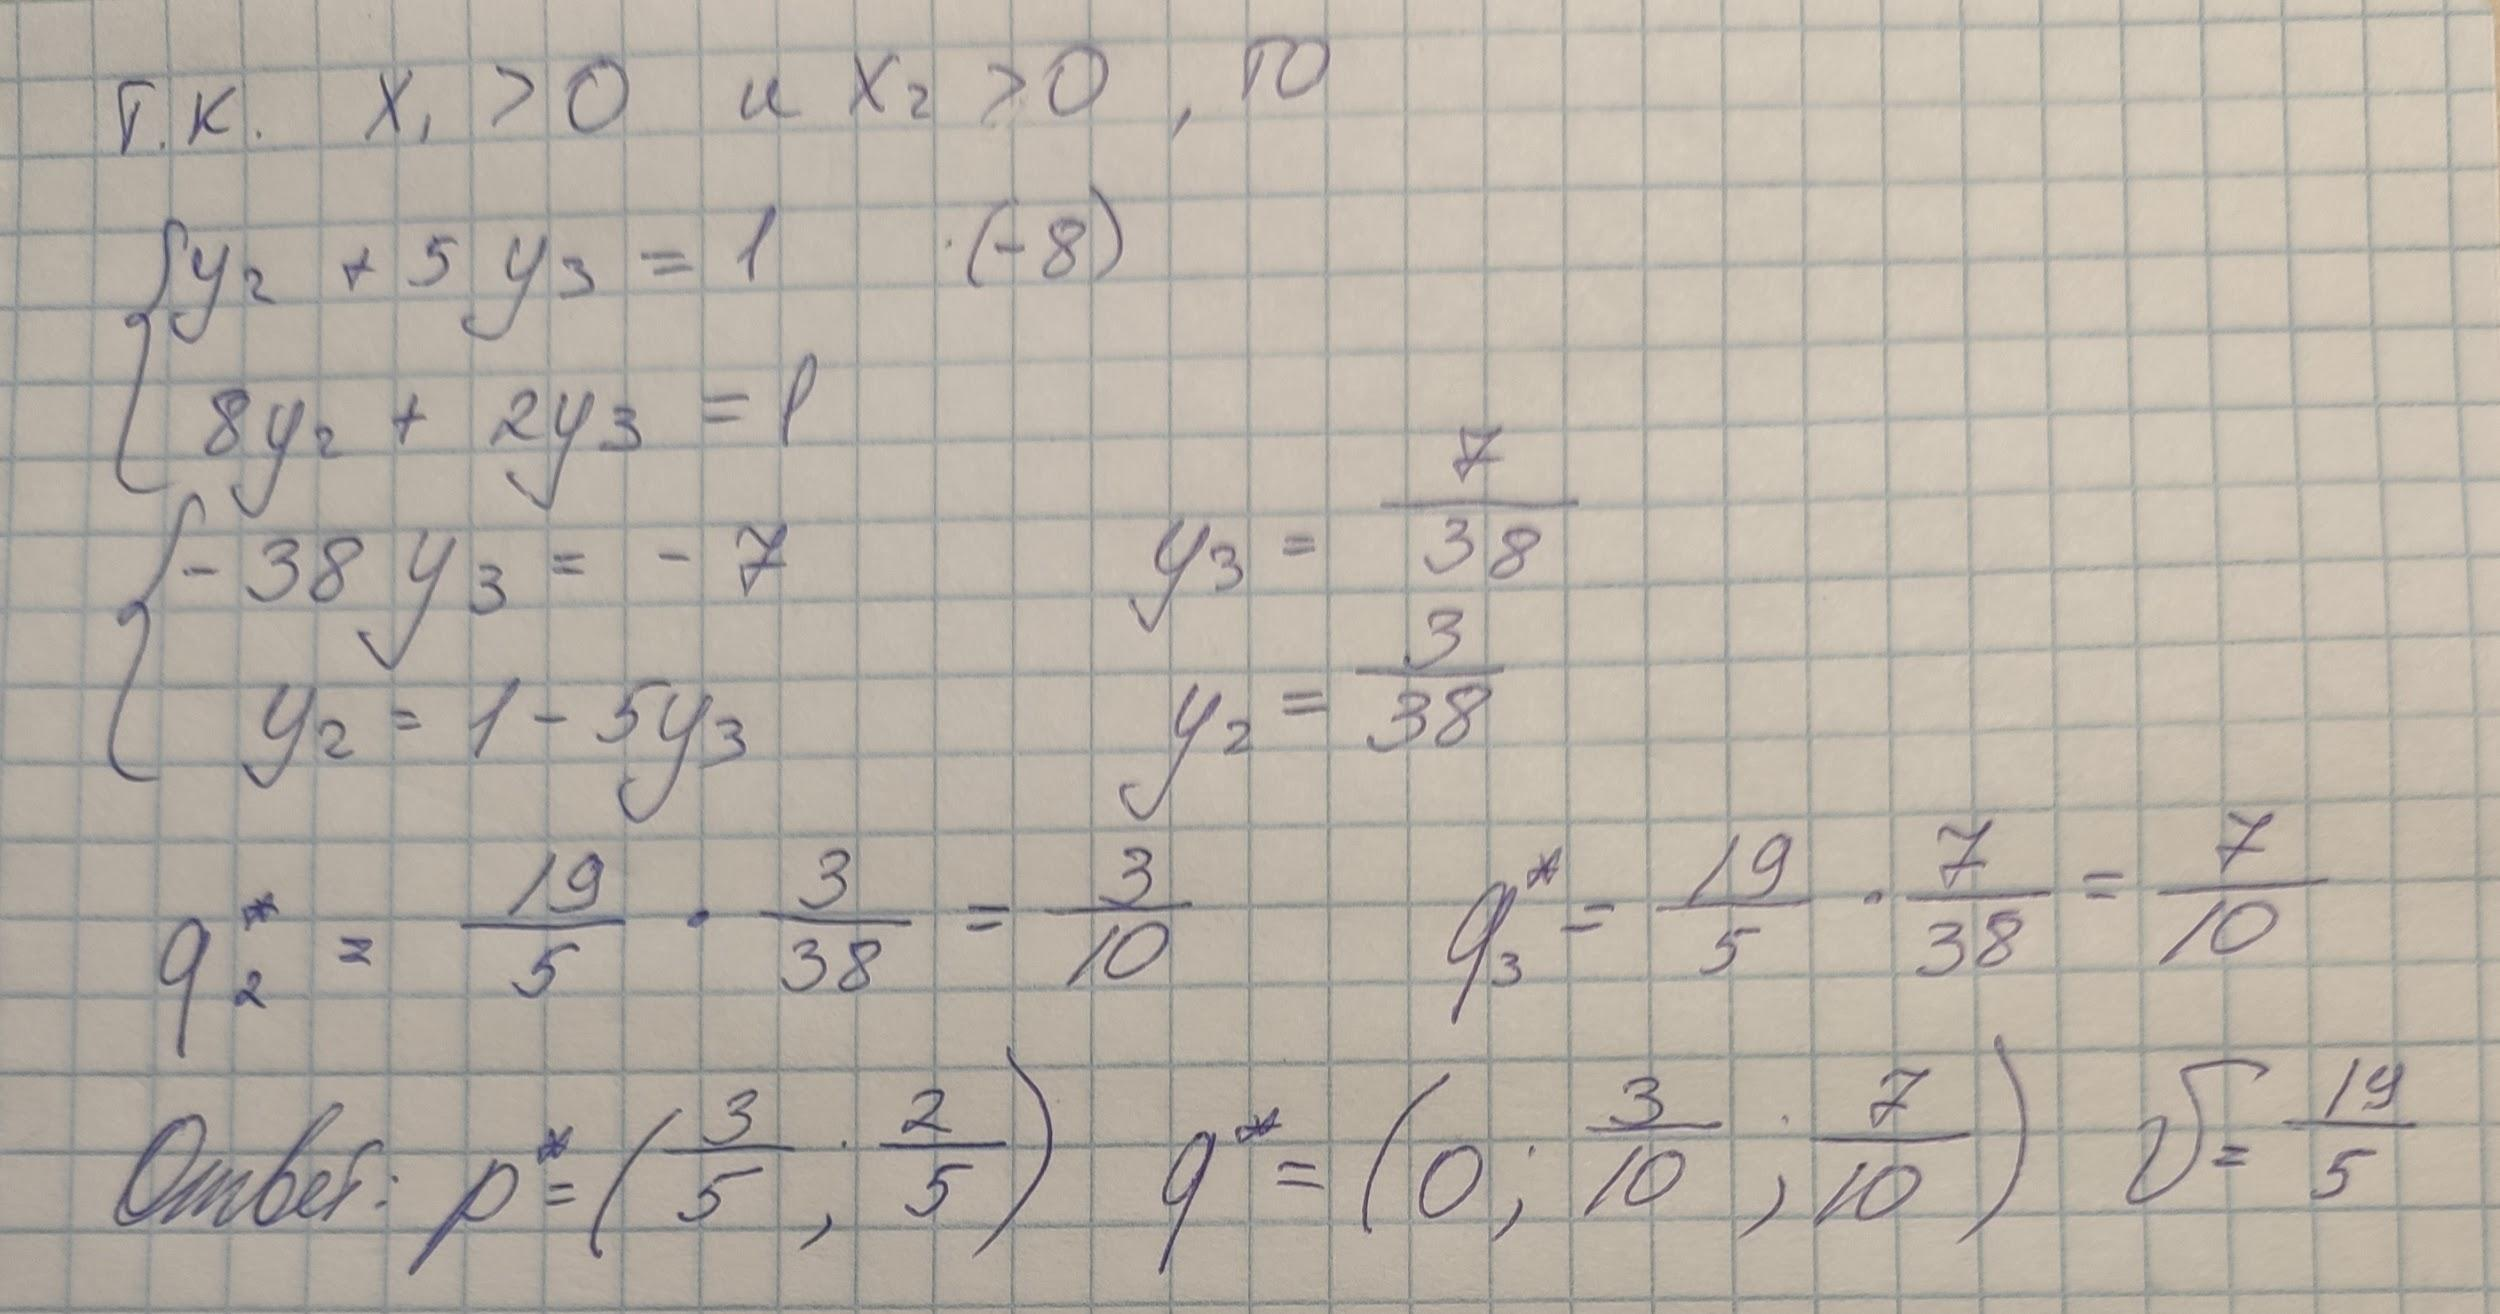 т.к. x₁ > 0 и x₂ > 0, то
{ y₂ + 5y₃ = 1 ·(-8)
8y₂ + 2y₃ = 1
{ -38y₃ = -7 y₃ = 7/38
y₂ = 1 - 5y₃ y₂ = 3/38
q₂* = 19/5 · 3/38 = 3/10 q₃* = 19/5 · 7/38 = 7/10
Ответ: p* = (3/5; 2/5) q* = (0; 3/10; 7/10) v = 19/5